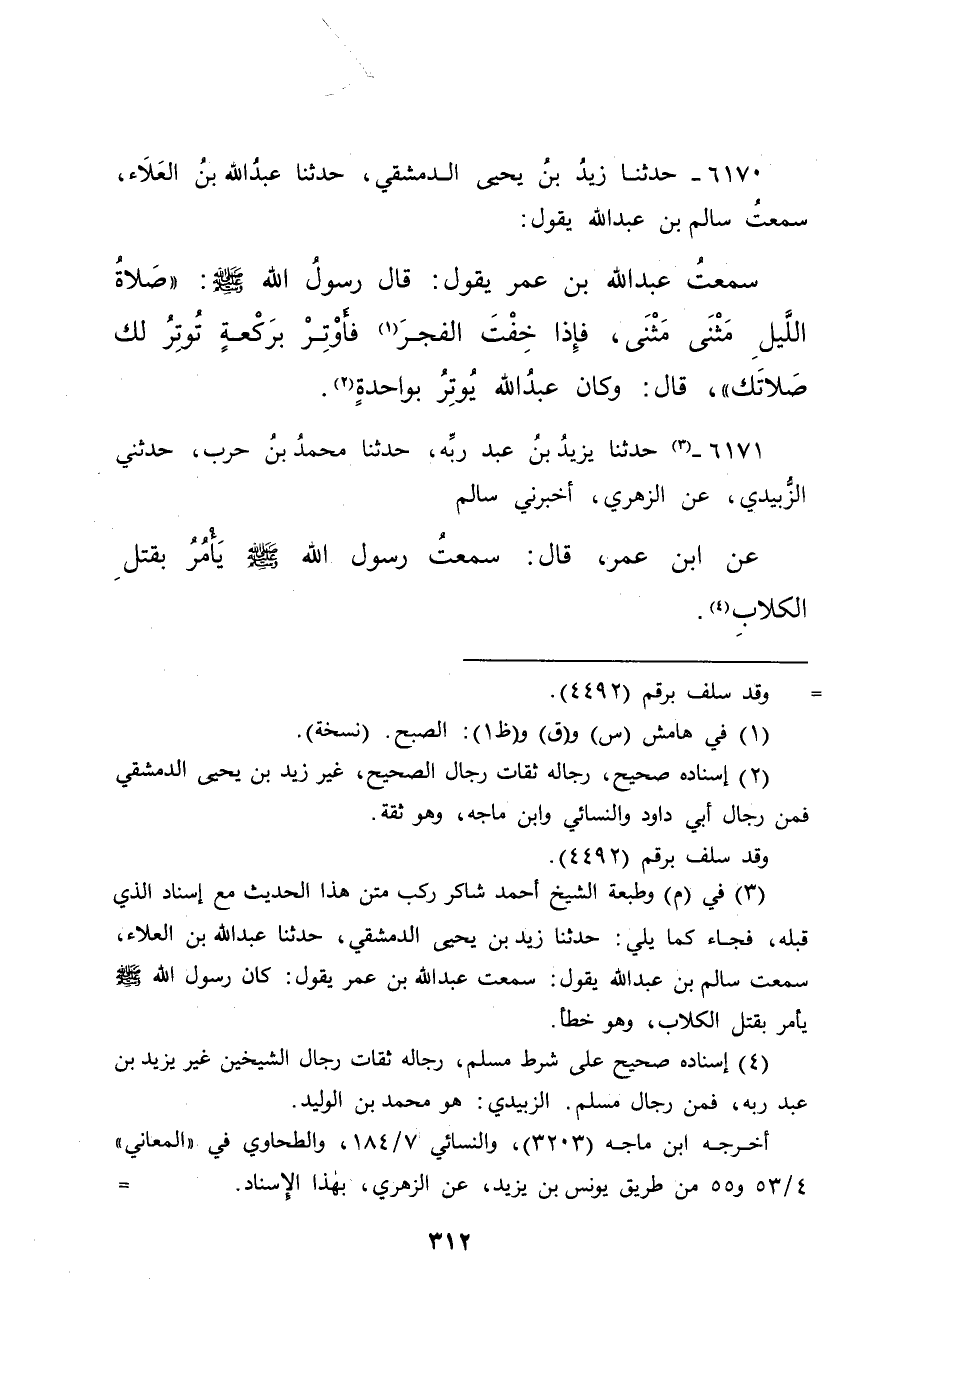 ٦١٧٠ـ حدثنـا زيدُ بنُ يحيى الـدمشقي، حدثنا عبدُالله بنُ العَلَاء،
سمعتُ سالم بن عبدالله يقول:
سمعتُ عبدالله بن عمر يقول: قال رسولُ الله ﷺ: «صَلاةُ
اللَّيلِ مَثْنَى مَثْنَى، فإِذا خِفْتَ الفجـرَ(١) فأَوْتِـرْ برَكْعـةٍ تُوتِرُ لك
صَلاتَك»، قال: وكان عبدُالله يُوتِرُ بواحدةٍ(٢).
٦١٧١ـ(٣) حدثنا يزيدُ بنُ عبد ربِّه، حدثنا محمدُ بنُ حرب، حدثني
الزُّبيدي، عن الزهري، أخبرني سالم
عن ابن عمر، قال: سمعتُ رسول الله ﷺ يَأْمُرُ بقتلِ
الكلابِ(٤).
= وقد سلف برقم (٤٤٩٢).
(١) في هامش (س) و(ق) و(ظ١): الصبح. (نسخة).
(٢) إسناده صحيح، رجاله ثقات رجال الصحيح، غير زيد بن يحيى الدمشقي
فمن رجال أبي داود والنسائي وابن ماجه، وهو ثقة.
وقد سلف برقم (٤٤٩٢).
(٣) في (م) وطبعة الشيخ أحمد شاكر ركب متن هذا الحديث مع إسناد الذي
قبله، فجـاء كما يلي: حدثنا زيد بن يحيى الدمشقي، حدثنا عبدالله بن العلاء،
سمعت سالم بن عبدالله يقول: سمعت عبدالله بن عمر يقول: كان رسول الله ﷺ
يأمر بقتل الكلاب، وهو خطأ.
(٤) إسناده صحيح على شرط مسلم، رجاله ثقات رجال الشيخين غير يزيد بن
عبد ربه، فمن رجال مسلم. الزبيدي: هو محمد بن الوليد.
أخـرجـه ابن ماجـه (٣٢٠٣)، والنسائي ١٨٤/٧، والطحاوي في «المعاني»
٥٣/٤ و٥٥ من طريق يونس بن يزيد، عن الزهري، بهٰذا الإِسناد. =
٣١٢